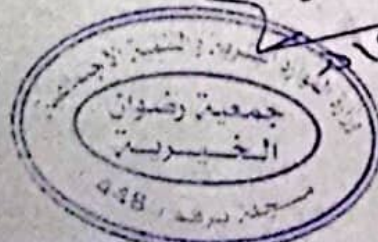 وزارة الموارد البشرية والتنمية الاجتماعية
جمعية رضوان
الخيرية
مسجلة برقم 448